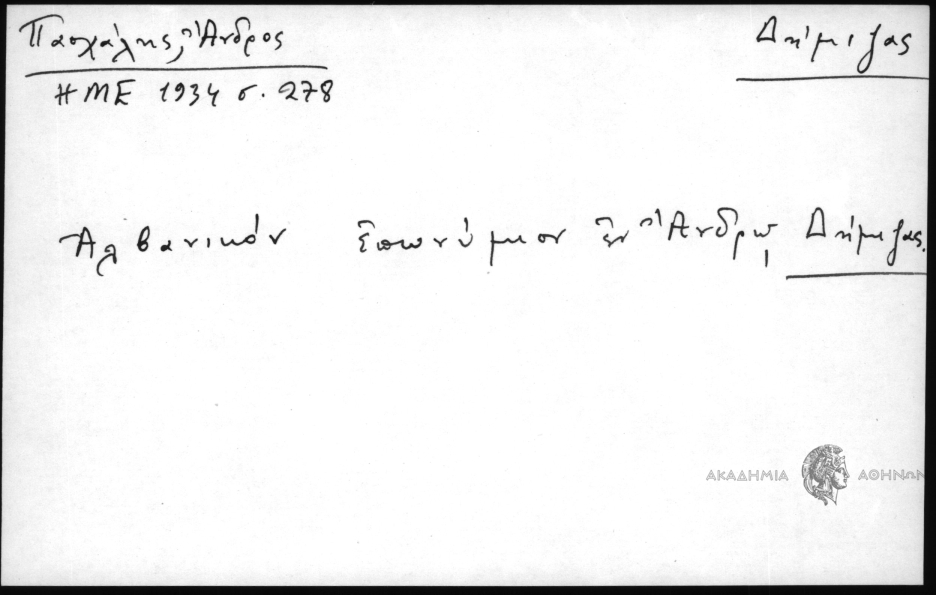 Πασχάλης, Ἄνδρος
Δήμιζας
ΗΜΕ 1934 σ. 278
Ἀλβανικόν ἐπωνύμιον ἐν Ἄνδρῳ Δήμιζας.
ΑΚΑΔΗΜΙΑ ΑΘΗΝΩΝ